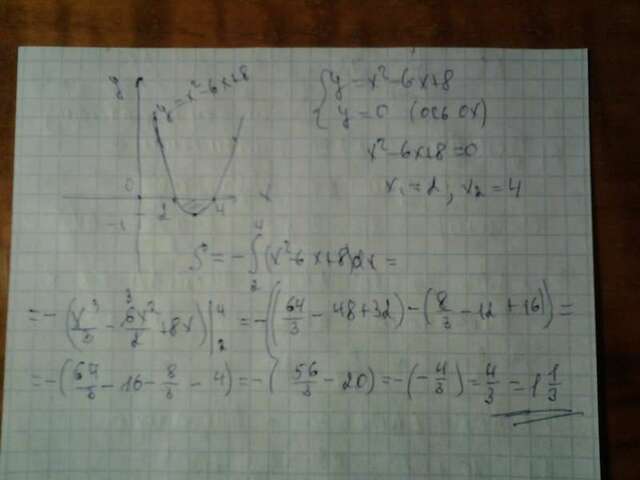 y
y = x² - 6x + 8
0
-1
2
4
x
{ y = x² - 6x + 8
y = 0 (ось OX)
x² - 6x + 8 = 0
x₁ = 2, x₂ = 4
S = - ∫₂⁴ (x² - 6x + 8) dx =
= - (x³/3 - 6x²/2 + 8x) |₂⁴ = - ((64/3 - 48 + 32) - (8/3 - 12 + 16)) =
= - (64/3 - 16 - 8/3 - 4) = - (56/3 - 20) = - (- 4/3) = 4/3 = 1 1/3